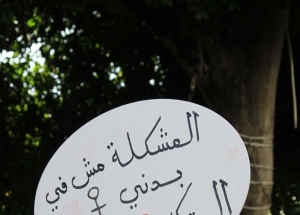 المشكلة مش في
بدني